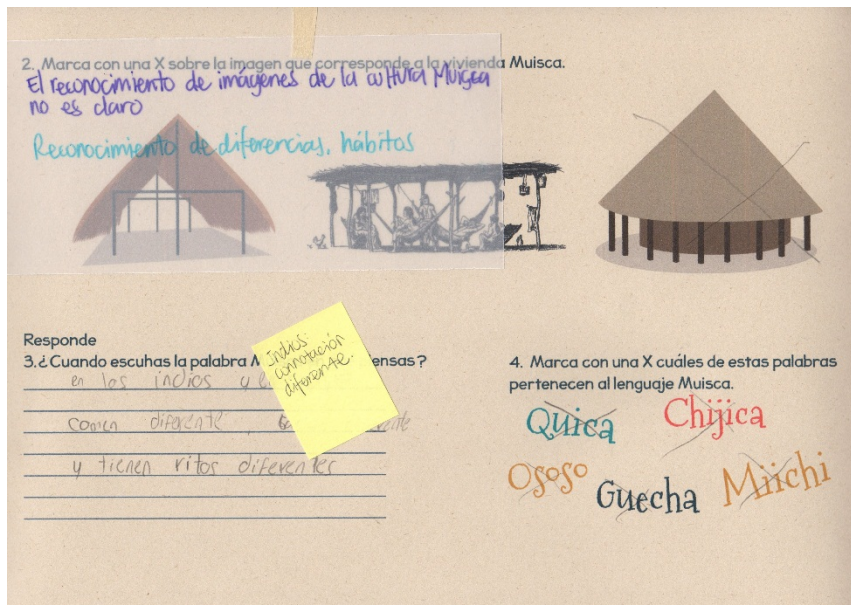 2. Marca con una X sobre la imagen que corresponde a la vivienda Muisca.
El reconocimiento de imágenes de la cultura Muisca
no es claro
Reconocimiento de diferencias, hábitos
Responde
3.¿Cuando escuhas la palabra M ensas?
en los indios y
comen diferente
y tienen ritos diferentes
Indios:
connotación
diferente.
4. Marca con una X cuáles de estas palabras
pertenecen al lenguaje Muisca.
Quica Chijica
Ososo Guecha Miichi